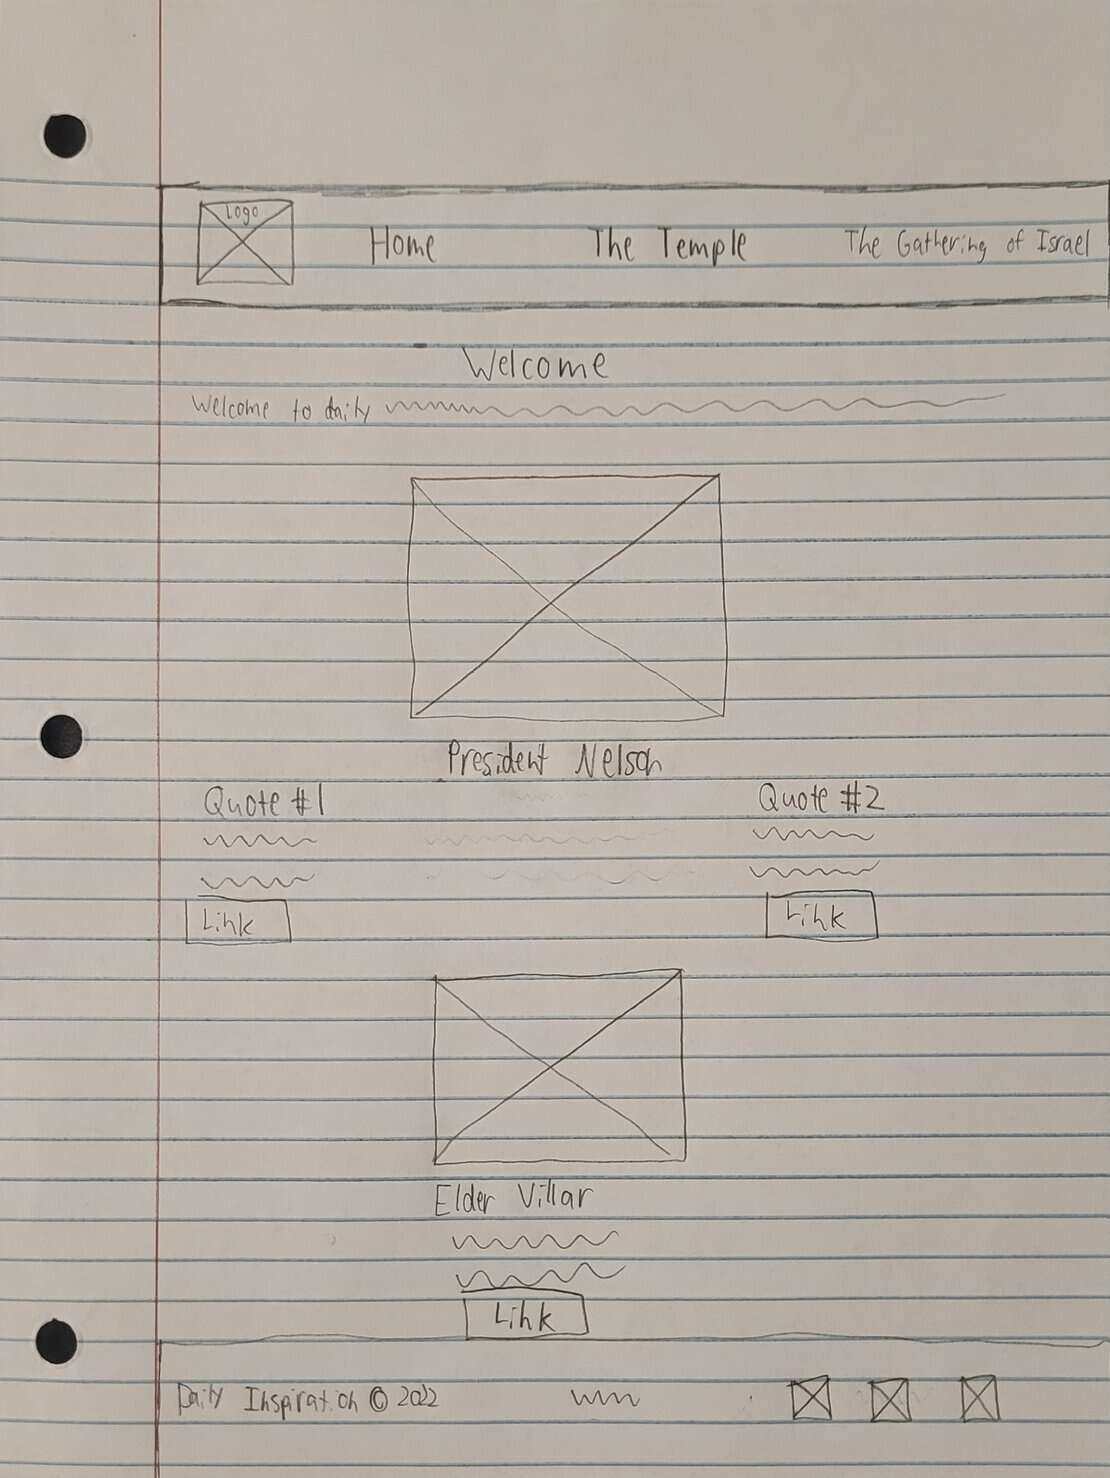 Logo
Home The Temple The Gathering of Israel
Welcome
Welcome to daily
President Nelson
Quote #1 Quote #2
Link Link
Elder Villar
Link
Daily Inspiration © 2022